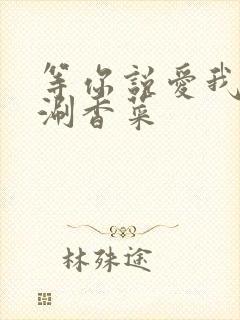 等你說愛我
涮香菜
林殊途